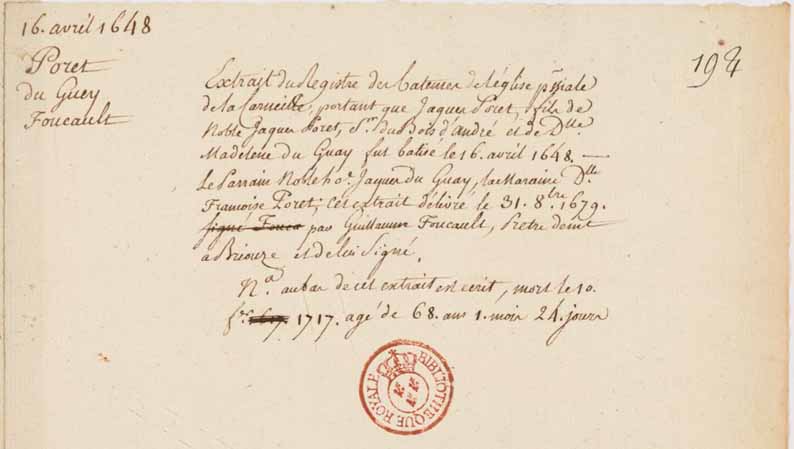 16. avril 1648
Poret
du Guey
Foucault
194
Extrait du Registre des batemes de l'église pssiale
de la Carneille, portant que Jaques Poret, fils de
Noble Jaques Poret, Sr. du Bois d'andré et de Dlle
Madelene du Guay fut batisé le 16. avril 1648. —
Le Parrain Noble ho.e Jaques du Guay, la Maraine Dlle.
Françoise Poret; cet extrait délivré le 31. 8.bre 1679.
signé Fouca par Guillaume Foucault, Pretre demt
a Briouze et de lui Signé.
N.a au bas de cet extrait est écrit, mort le 10.
1717. agé de 68. ans 1. mois 24. jours
BIBLIOTHEQUE ROYALE